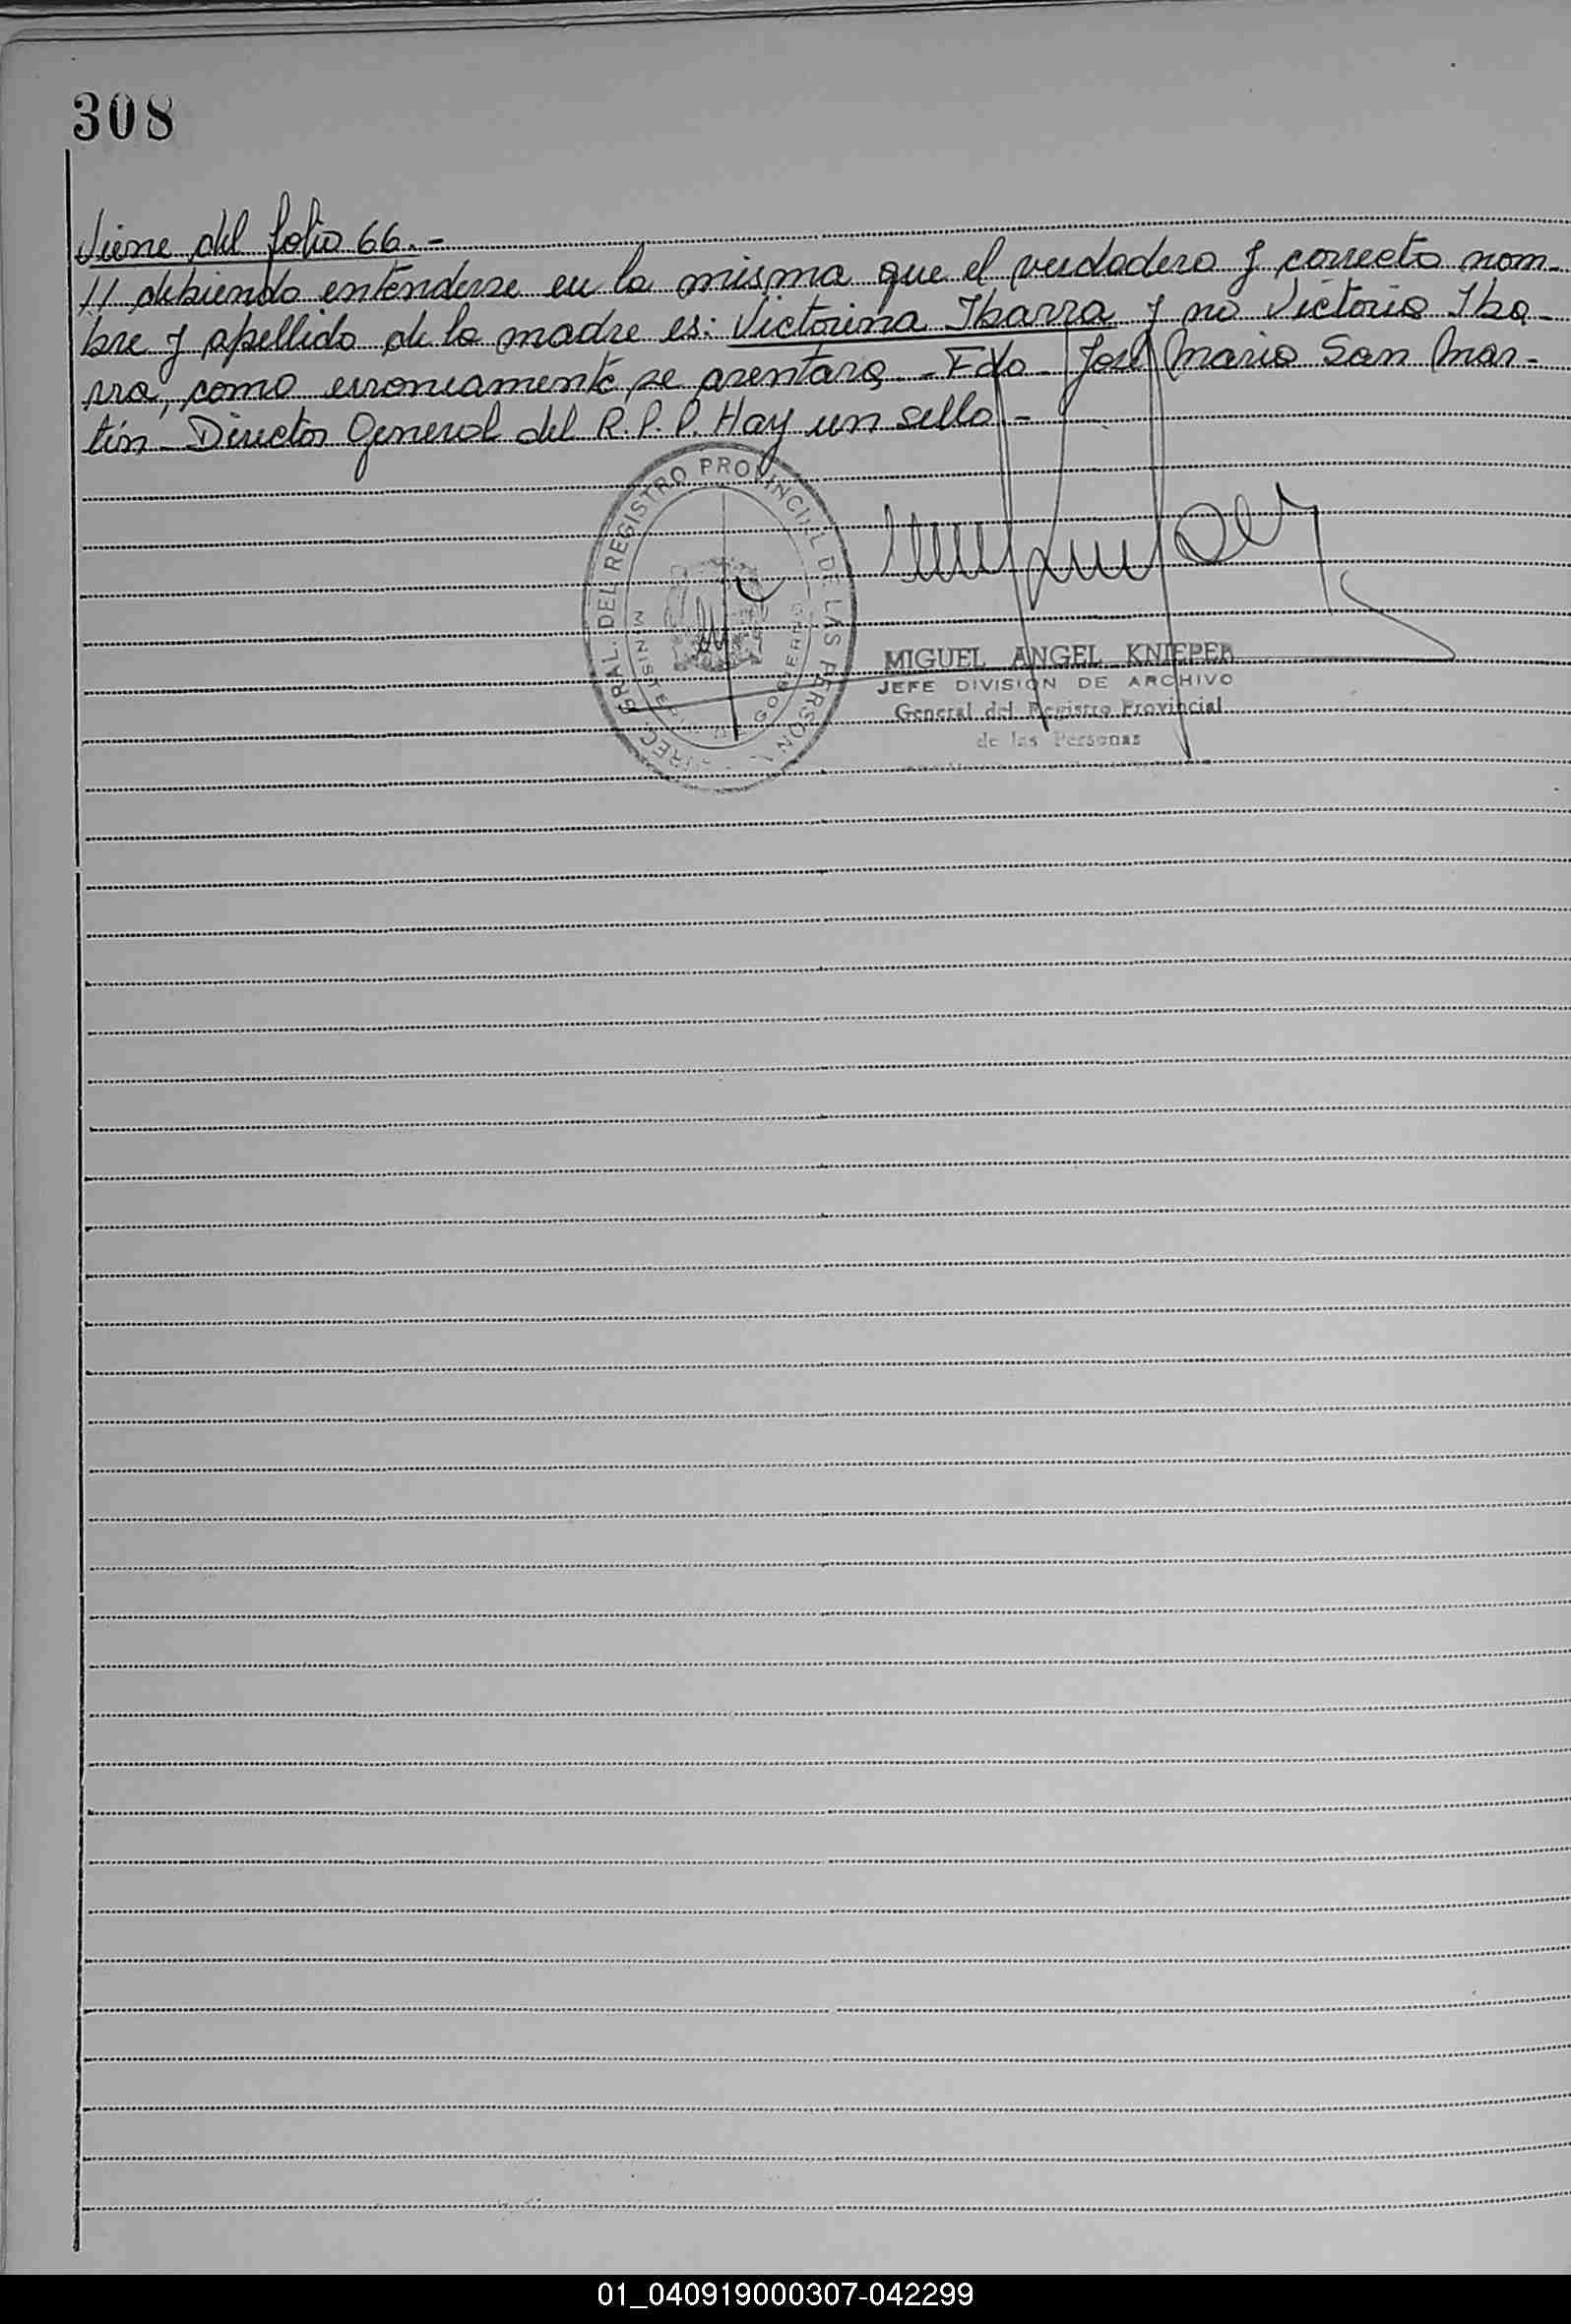 308
Viene del folio 66.-
// debiendo entenderse en la misma que el verdadero y correcto nom-
bre y apellido de la madre es: Victorina Ibarra y no Victoria Iba-
rra, como erroneamente se asentara.-Fdo. José Maria San Mar-
tín-Director General del R.P.P. Hay un sello.-
GRAL. DEL REGISTRO PROVINCIAL DE LAS PERSONAS
GOBIERNO
MIGUEL ANGEL KNIEPER
JEFE DIVISION DE ARCHIVO
General del Registro Provincial
de las Personas
01_040919000307-042299